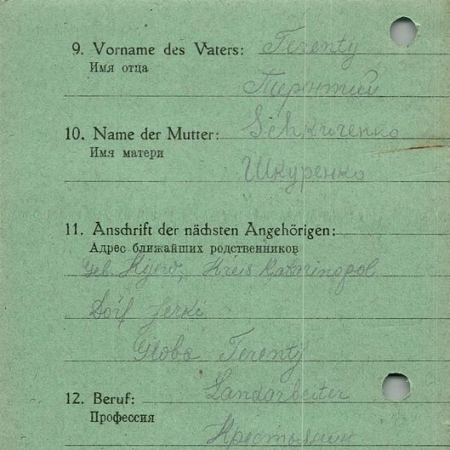 9. Vorname des Vaters: Terenty
Имя отца
Тирэнтий
10. Name der Mutter: Schkurenko
Имя матери
Шкуренко
11. Anschrift der nächsten Angehörigen:
Адрес ближайших родственников
Geb. Kijew, Kreis
Dorf Jerki
Terentÿ
12. Beruf: Landarbeiter
Профессия